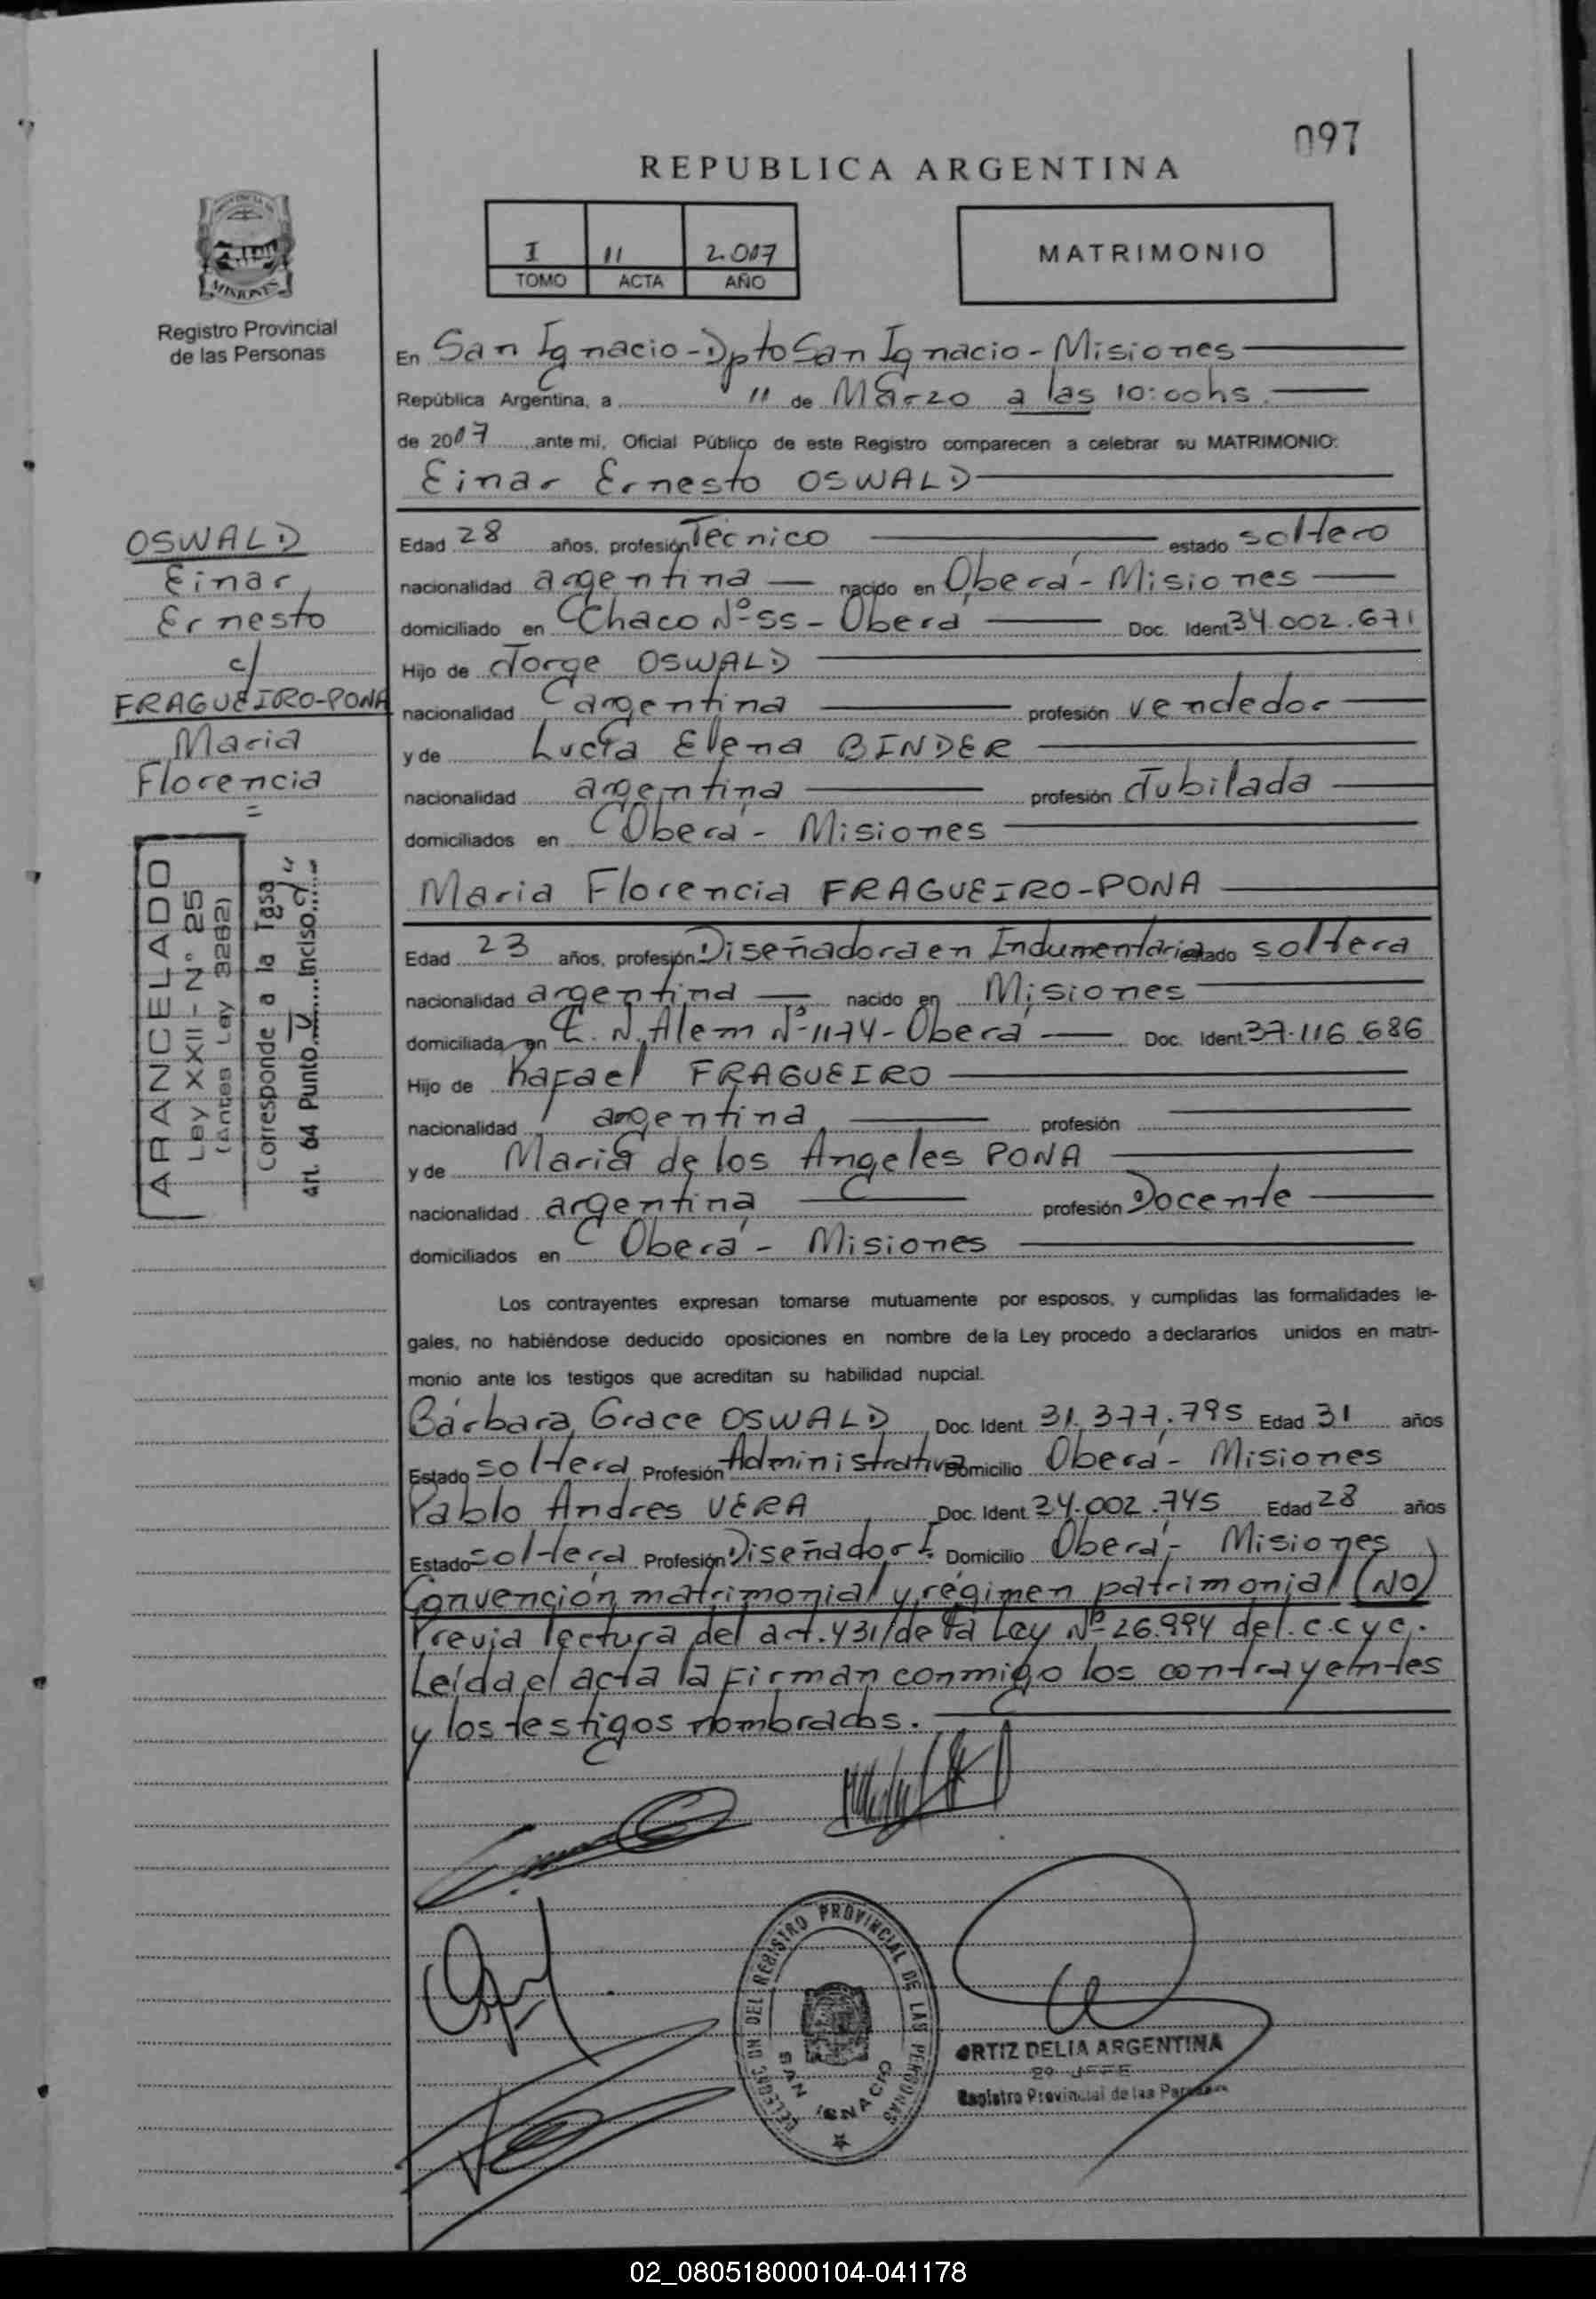 097
REPUBLICA ARGENTINA
I 11 2.017
TOMO ACTA AÑO
MATRIMONIO
MISIONES
Registro Provincial
de las Personas
En San Ignacio - Dpto San Ignacio - Misiones
República Argentina, a 11 de Marzo a las 10:00hs.
de 2017 ante mi, Oficial Público de este Registro comparecen a celebrar su MATRIMONIO:
Einar Ernesto OSWALD
OSWALD
Einar
Ernesto
c/
FRAGUEIRO-PONA
Maria
Florencia
=
Edad 28 años, profesión Técnico estado soltero
nacionalidad argentina nacido en Oberá - Misiones
domiciliado en Chaco Nº 55 - Oberá Doc. Ident 34.002.671
Hijo de Jorge OSWALD
nacionalidad argentina profesión vendedor
y de Lucía Elena BINDER
nacionalidad argentina profesión Jubilada
domiciliados en Oberá - Misiones
Maria Florencia FRAGUEIRO-PONA
ARANCELADO
Ley XXII - N° 25
(antes Ley 3262)
Corresponde a la Tasa
Art. 64 Punto V Inciso
Edad 23 años, profesión Diseñadora en Indumentaria estado soltera
nacionalidad argentina nacido en Misiones
domiciliada en L. N. Alem Nº 1174 - Oberá Doc. Ident 37.116.686
Hijo de Rafael FRAGUEIRO
nacionalidad argentina profesión
y de Maria de los Angeles PONA
nacionalidad argentina profesión Docente
domiciliados en Oberá - Misiones
Los contrayentes expresan tomarse mutuamente por esposos, y cumplidas las formalidades le-
gales, no habiéndose deducido oposiciones en nombre de la Ley procedo a declararlos unidos en matri-
monio ante los testigos que acreditan su habilidad nupcial.
Bárbara Grace OSWALD Doc. Ident. 31.377.795 Edad 31 años
Estado soltera Profesión Administrativa Domicilio Oberá - Misiones
Pablo Andres VERA Doc. Ident. 34.002.745 Edad 28 años
Estado soltera Profesión Diseñador I. Domicilio Oberá - Misiones
Convención matrimonial y régimen patrimonial (NO)
Previa lectura del art. 431/de la Ley Nº 26.994 del. c.c y c.
Leída el acta la firman conmigo los contrayentes
y los testigos nombrados.
DELEGACION DEL REGISTRO PROVINCIAL DE LAS PERSONAS
SAN IGNACIO
ORTIZ DELIA ARGENTINA
2º JEFE
Registro Provincial de las Personas
02_080518000104-041178